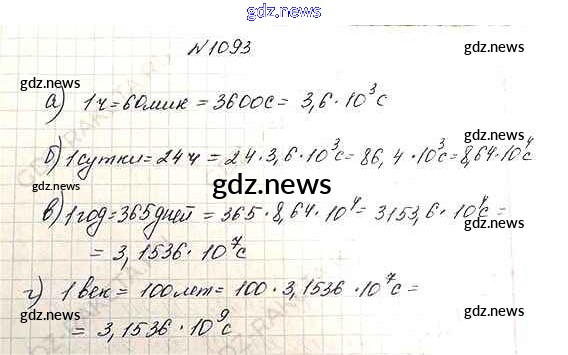 gdz.news
№1093
gdz.news
gdz.news
а) 1ч = 60мин = 3600с = 3,6·10³с
gdz.news
б) 1сутки = 24ч = 24·3,6·10³с = 86,4·10³с = 8,64·10⁴с
gdz.news
gdz.news
в) 1год = 365дней = 365·8,64·10⁴ = 3153,6·10⁴с =
gdz.news
gdz.news
= 3,1536·10⁷с
г) 1век = 100лет = 100·3,1536·10⁷с =
gdz.news
= 3,1536·10⁹с
gdz.news
gdz.news